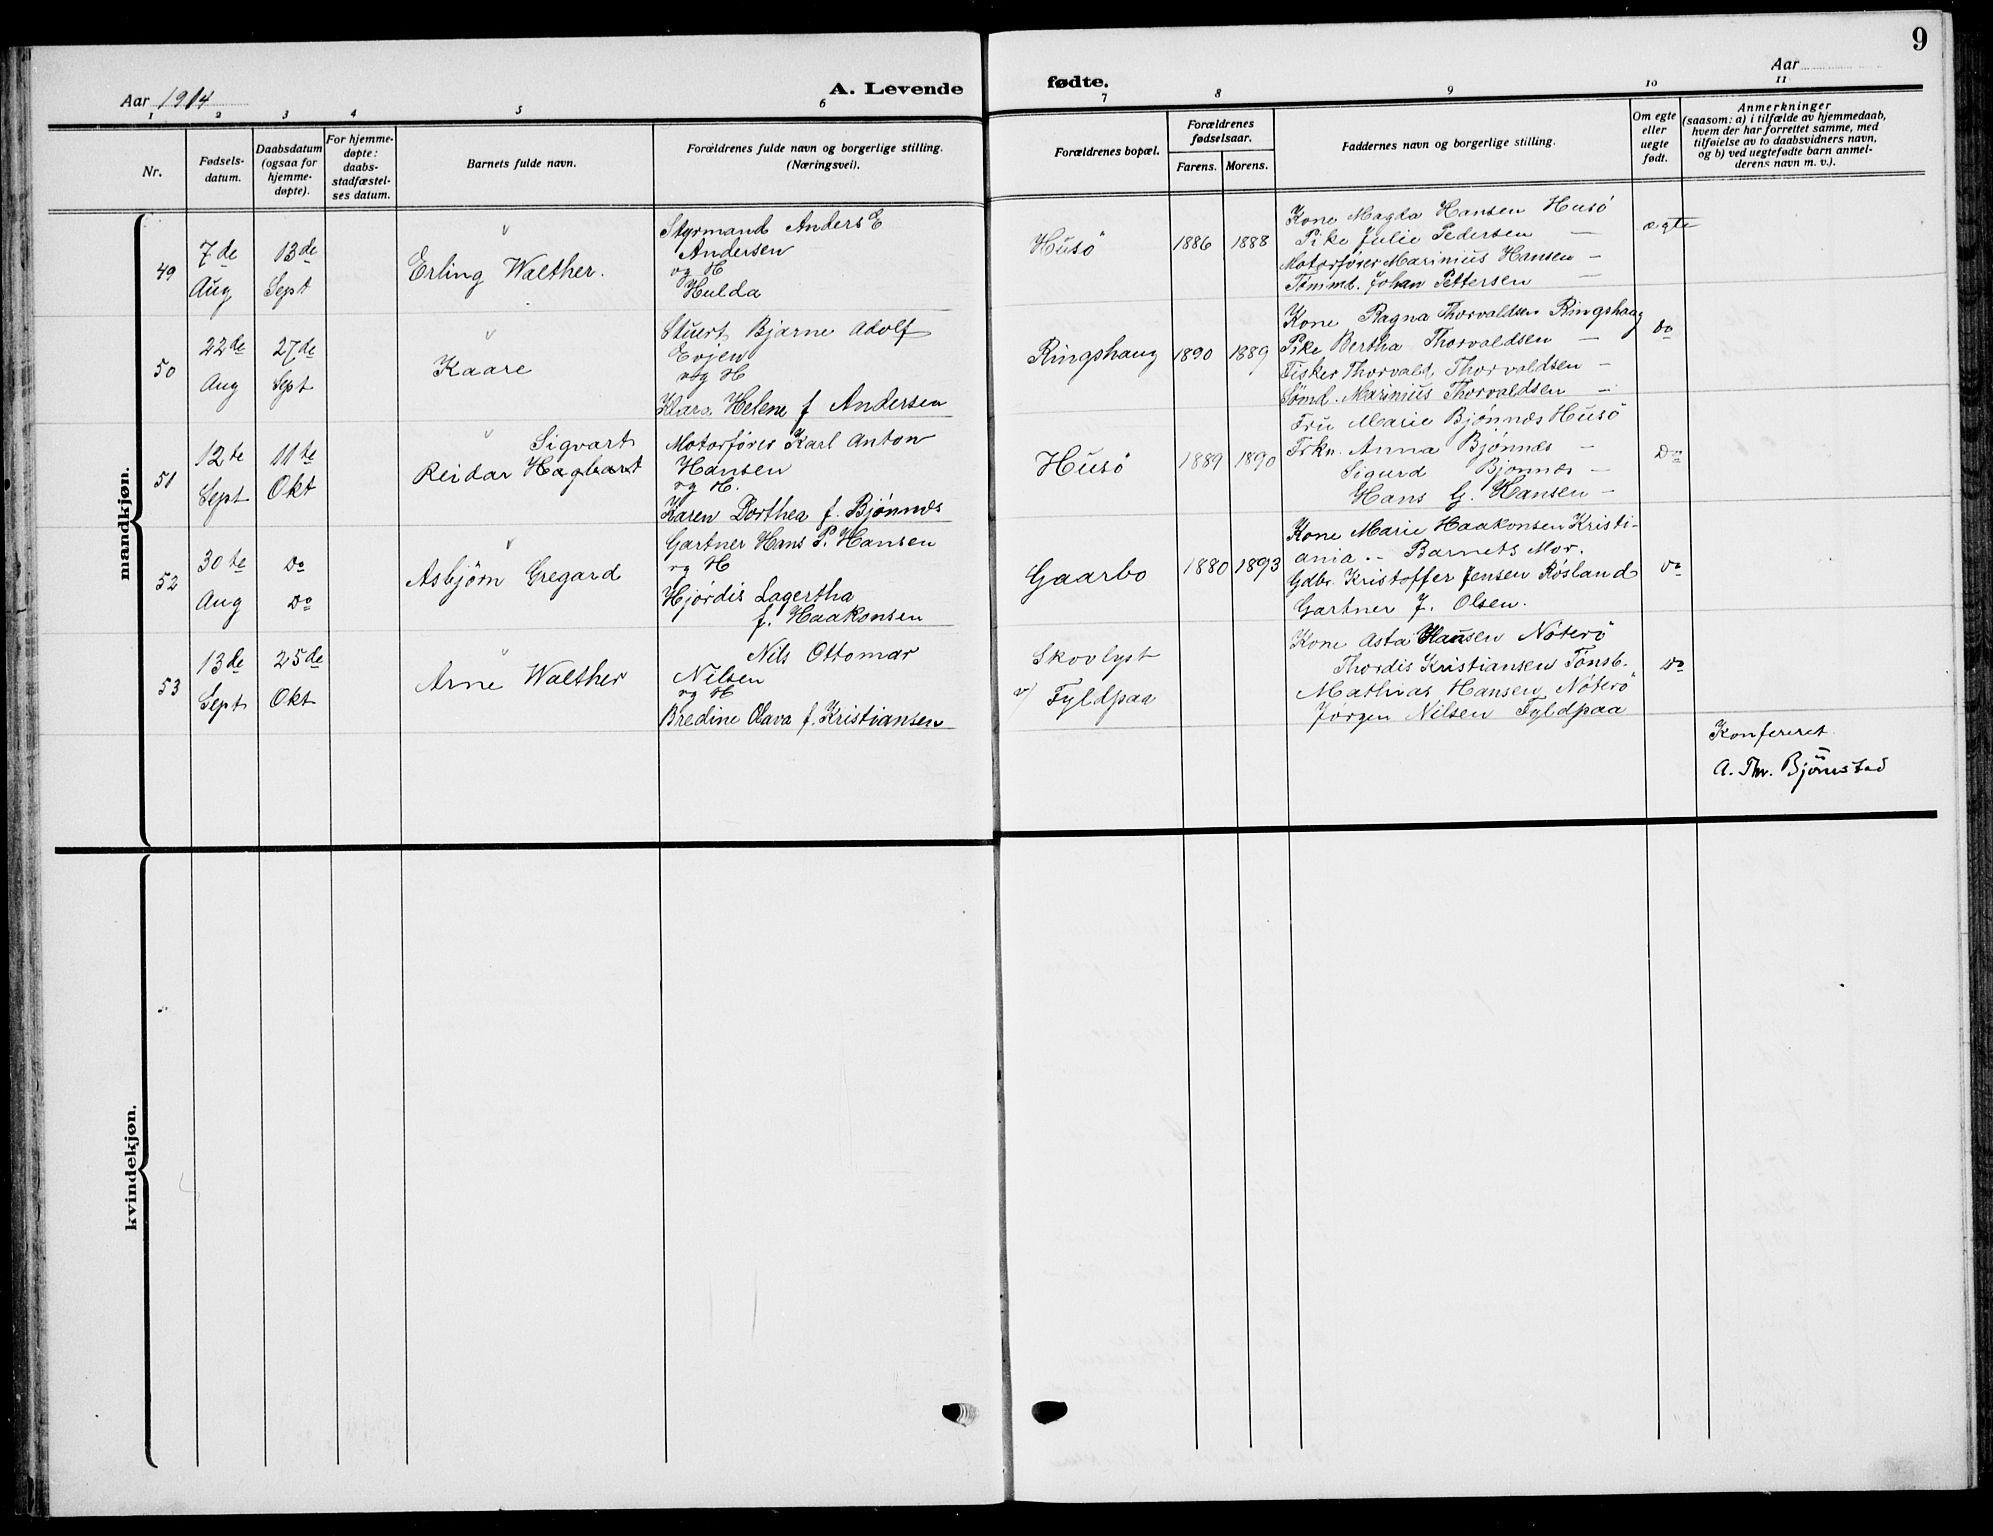 9
Aar 1914
A. Levende
fødte.
Aar
1 2 3 4 5 6
7 8 9 10 11
Nr.
Fødsels-
datum.
Daabsdatum
(ogsaa for
hjemme-
døpte).
For hjemme-
døpte:
daabs-
stadfæstel-
ses datum.
Barnets fulde navn.
Forældrenes fulde navn og borgerlige stilling.
(Næringsvei).
Forældrenes bopæl.
Forældrenes
fødselsaar.
Farens. Morens.
Faddernes navn og borgerlige stilling.
Om egte
eller
uegte
født.
Anmerkninger
(saasom: a) i tilfælde av hjemmedaab,
hvem der har forrettet samme, med
tilføielse av to daabsvidners navn,
og b) ved uegtefødte barn anmel-
derens navn m. v.).
mandkjøn.
49
7de
Aug
13de
Sept
Erling Walther.
Styrmand Anders E
Andersen
og H
Hulda
Husö
1886
1888
Kone Magda Hansen Husö
Pike Julie Pedersen —
Motorfører Marinius Hansen —
Tømmd. Johan Pettersen —
ægte
50
22de
Aug
27de
Sept
Kaare
Stuert Bjarne Adolf
Evjen
og H
Klara Helene f Andersen
Ringshaug
1890
1889
Kone Ragna Thorvaldsen Ringshaug
Pike Bertha Thorvaldsen —
Fisker Thorvald Thorvaldsen —
Sømd. Marinius Thorvaldsen —
Do
51
12te
Sept
11te
Okt
Sigvart
Reidar Hagbart
Motorfører Karl Anton
Hansen
og H.
Karen Dorthea f. Bjønnes
Husö
1889
1890
Fru Marie Bjønnes Husö
Frkn. Anna Bjønnes —
Sigurd Bjønnes —
Hans G. Hansen —
Do
52
30te
Aug
Do
Do
Asbjørn Gregard
Gartner Hans P. Hansen
og H
Hjørdis Lagertha
f. Haakonsen
Gaarbo
1880
1893
Kone Marie Haakonsen Kristi-
ania. — Barnets Mor.
Gdbr. Kristoffer Jensen Røsland
Gartner J. Olsen.
Do
53
13de
Sept
25de
Okt
Arne Walther
Nils Ottomar
Nilsen
og H
Bredine Olava f. Kristiansen
Skovlyst
v/ Fyldpaa
Kone Asta Hansen Nöterö
Thordis Kristiansen Tønsb.
Mathias Hansen Nöterö
Jørgen Nilsen Fyldpaa
Do
Konfereret
A. Thr. Bjørnstad
kvindekjøn.